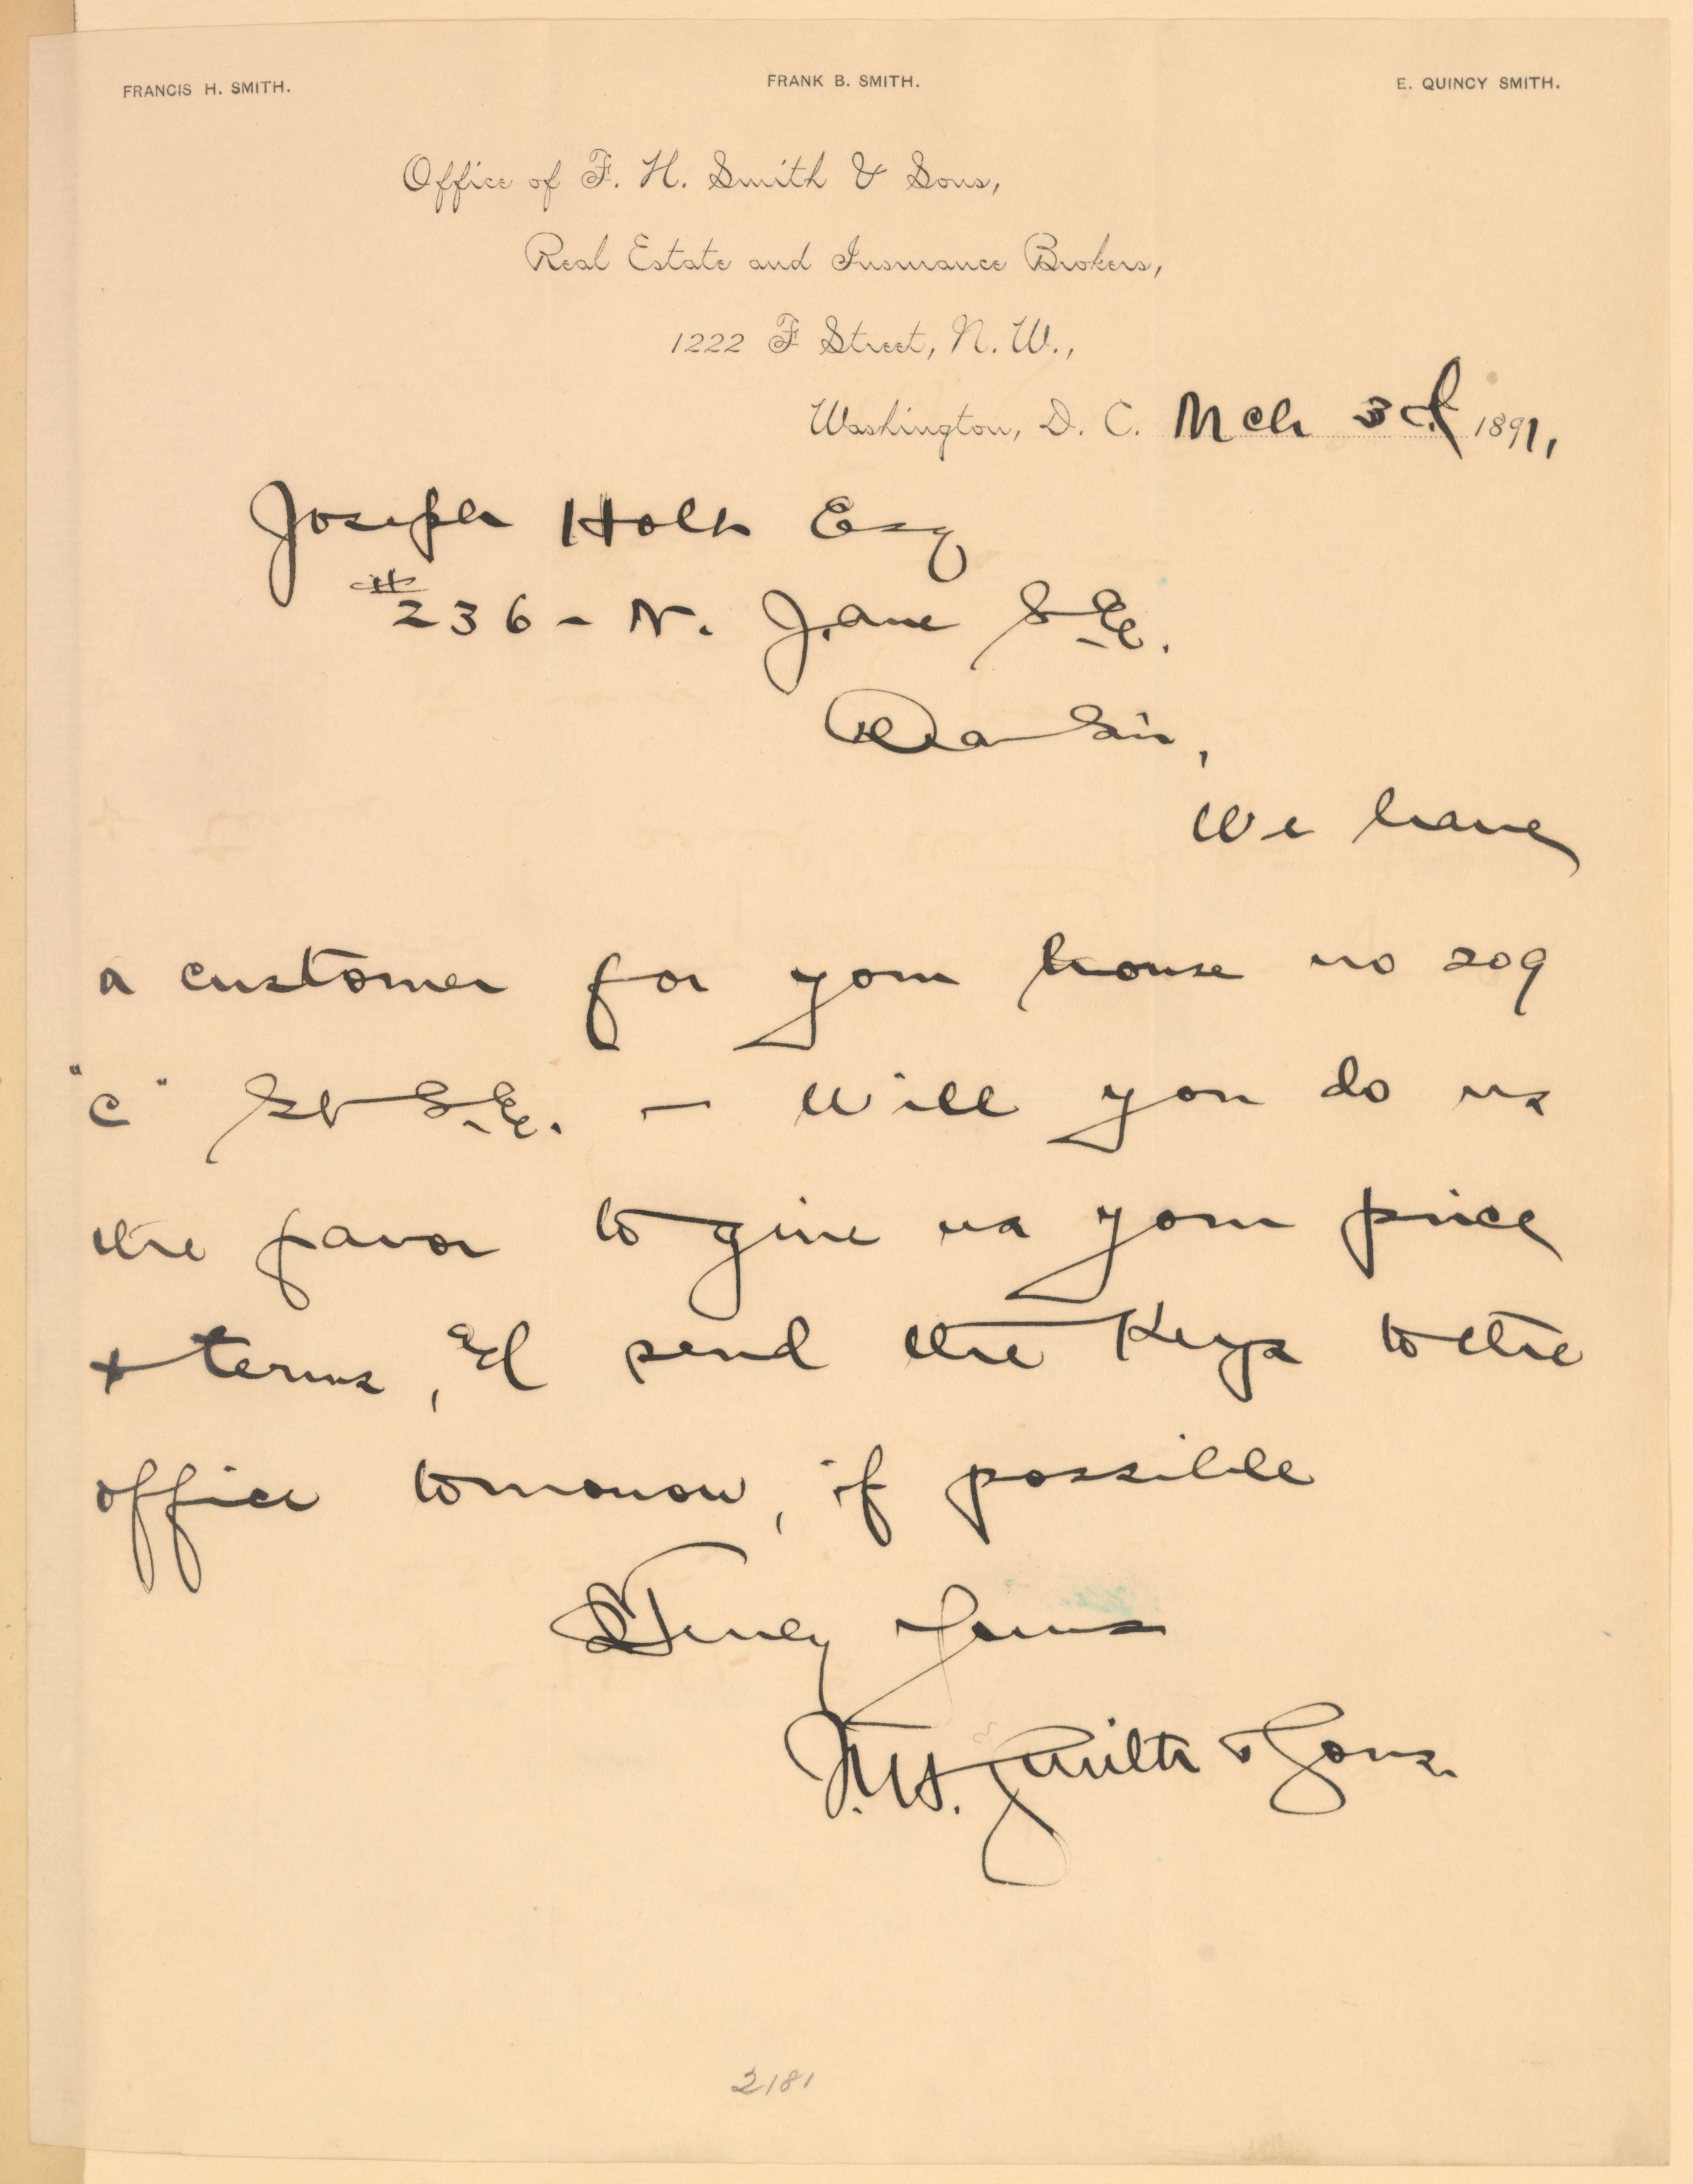 FRANCIS H. SMITH. FRANK B. SMITH. E. QUINCY SMITH.
Office of F. H. Smith & Sons,
Real Estate and Insurance Brokers,
1222 F Street, N. W.,
Washington, D. C. Mch 3d 1891,
Joseph Holt Esq
#236 - N. J. ave S.E.
Dear Sir,
We have
a customer for your house no 209
"C" St S.E. — Will you do us
the favor to give us your price
& terms, & send the Keys to the
office tomorrow, if possible
Truly Yours
F. H. Smith & Sons.
2181